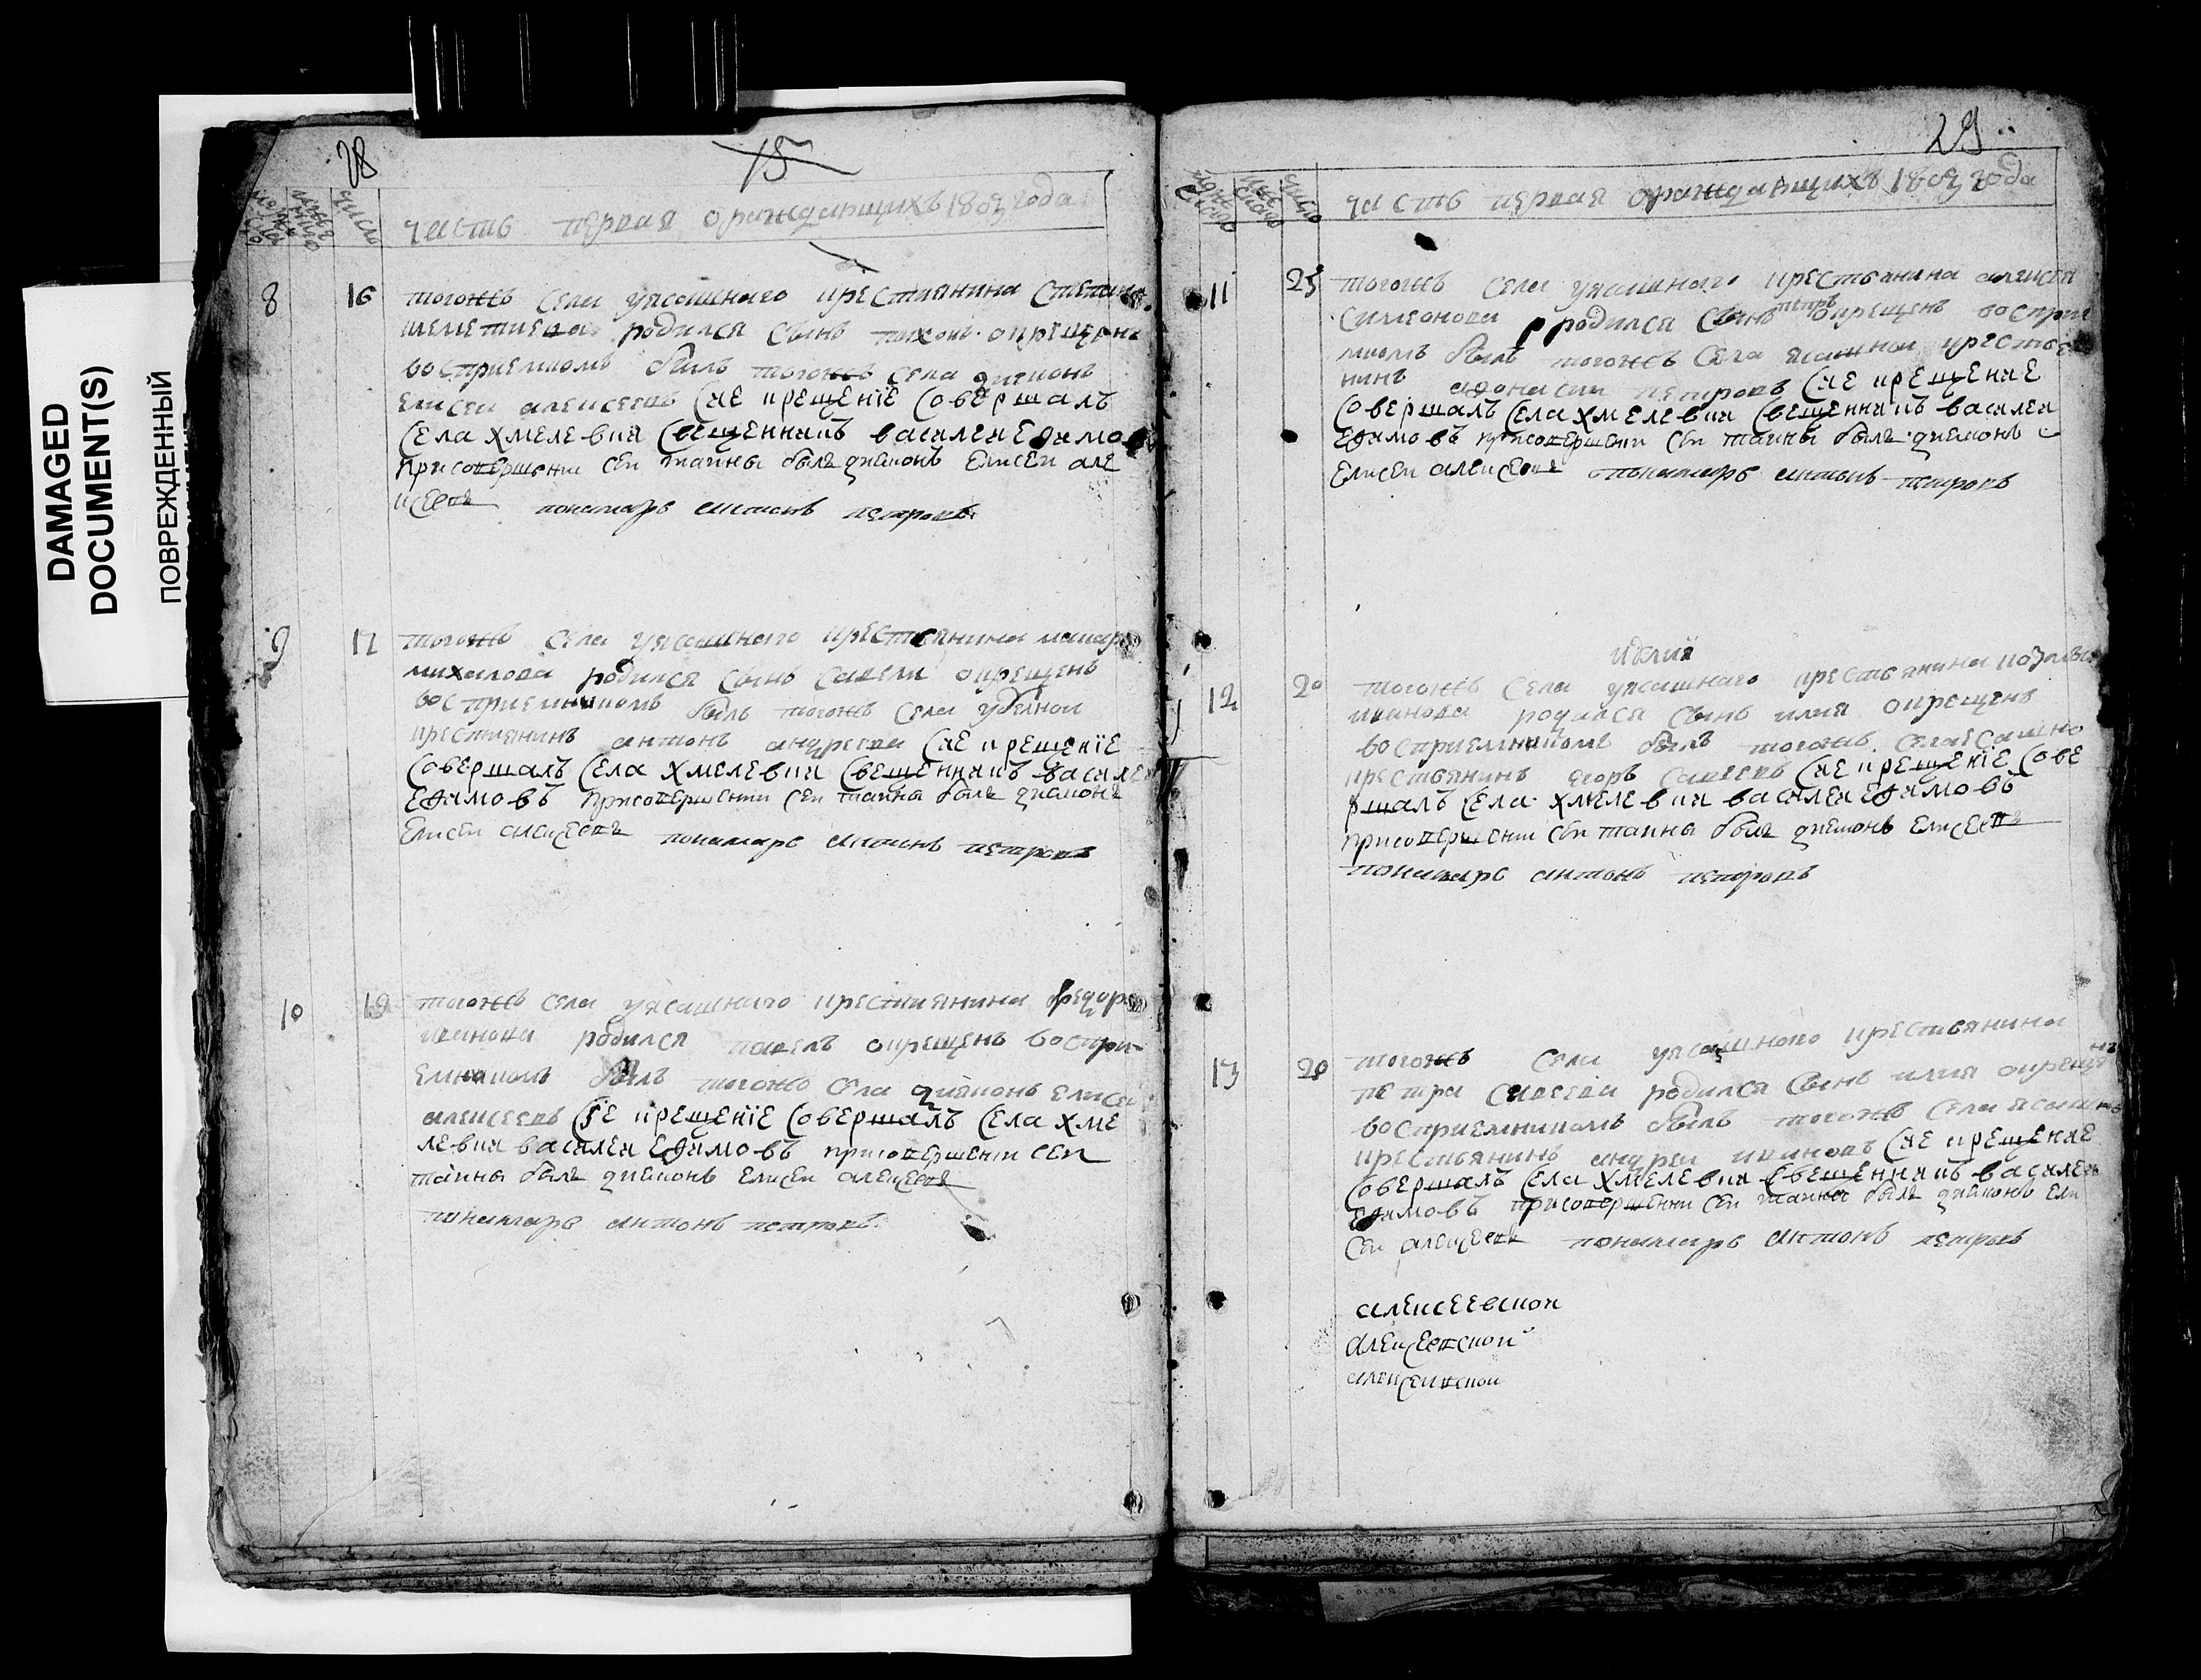 DAMAGED
DOCUMENT(S)
ПОВРЕЖДЕННЫЙ
28
15
число
часть первая ораждающихъ 1803 года
8 16 тогожъ села уясашнаго крестьянина степана
родился сынъ тихонъ окрещенъ
восприемником былъ тогожъ села диаконъ
елисеи алексеевъ сие крещенїе совершалъ
села хмелевки священникъ василеи ефимовъ
присовершении сеи таины былъ диаконъ елисеи але
ксеевъ пономарь антонъ петровъ
9 17 тогожъ села уясашнаго крестьянина макара
михаилова родился сынъ савели окрещенъ
восприемником былъ тогожъ села уделнои
крестиянинъ антонъ андреевъ сие крещенїе
совершалъ села хмелевки священникъ василеи
ефимовъ присовершении сеи таины былъ диаконъ
елисеи алексеевъ пономарь антонъ петровъ
10 19 тогожъ села уясашнаго крестиянина федора
иванова родился павелъ окрещенъ воспри
емником былъ тогожъ села диаконъ елисеи
алексеевъ сїе крещенїе совершалъ села хме
левки василеи ефимовъ присовершении сеи
таины былъ диаконъ елисеи алексеевъ
пономарь антонъ петровъ
29
число
часть первая ораждающихъ 1803 года
11 25 тогожъ села уясашнаго крестьянина алексея
симеонова родился сынъ петръ окрещенъ воспри
мкомъ былъ тогожъ села ясашнои крестья
нинъ афонасии петровъ сие крещение
совершалъ села хмелевки священникъ василеи
ефимовъ присовершении сеи таины былъ диаконъ
елисеи алексеевъ пономарь антонъ петровъ
июлия
12 20 тогожъ села уясашнаго крестьянина козмы
иванова родился сынъ илия окрещенъ
восприемником былъ тогожъ села ясашно
крестьянинъ егоръ савеевъ сие крещенїе сове
ршалъ села хмелевки василеи ефимовъ
присовершении сеи таины былъ диаконъ елисеевъ
пономарь антонъ петровъ
13 20 тогожъ села уясашного крестьянина
петра савеева родился сынъ илия окрещенъ
восприемникомъ былъ тогожъ села ясашно
крестьянинъ андреи ивановъ сие крещение
совершалъ села хмелевки священникъ василеи
ефимовъ присовершении сеи таины былъ диаконъ ели
сеи алексеевъ пономарь антонъ петровъ
алексеевскои
алексеевскои
алексеивскои